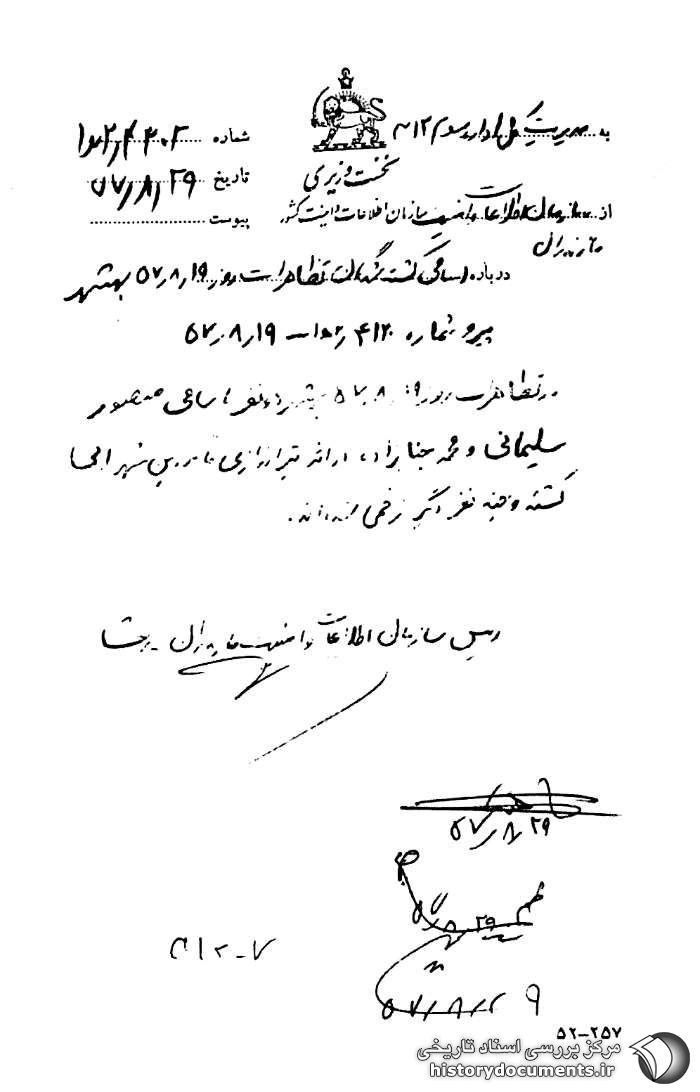 به مدیریت کل اداره سوم ۳۱۲
شماره
نخست وزیری
تاریخ ۵۷/۸/۲۹
از سازمان اطلاعات و امنیت
سازمان اطلاعات و امنیت کشور
پیوست
مازندران
درباره اسامی کشته شدگان تظاهرات روز ۵۷/۸/۱۹ بهشهر
پیرو شماره ۵۷/۸/۱۹
در تظاهرات روز ۵۷/۸/۱۹ بهشهر دو نفر اسامی منصور
سلیمانی و محمد در اثر تیراندازی مامورین شهربانی
کشته و چند نفر دیگر زخمی شده‌اند.
رییس سازمان اطلاعات و امنیت مازندران
۵۷/۸/۲۹
۵۷/۸/۲۹
۵۷/۸/۲۹
۵۲-۲۵۷
مرکز بررسی اسناد تاریخی
historydocuments.ir